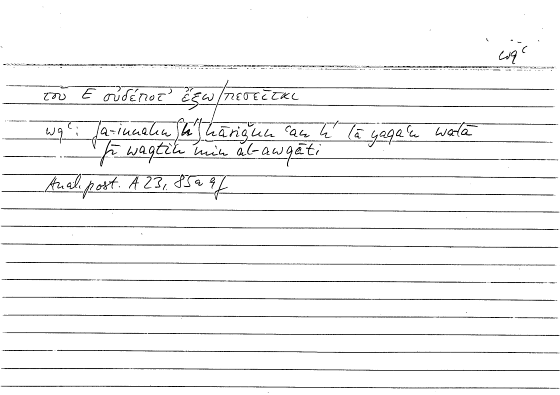 wqʿ
τοῦ Ε οὐδέποτ᾽ ἔξω/πεσεῖται
wqʿ: fa-innahu {h'} ḫāriǧun ʿan h' lā yaqaʿu walā
fī waqtin min al-awqāti
Anal. post. A 23, 85a 9f